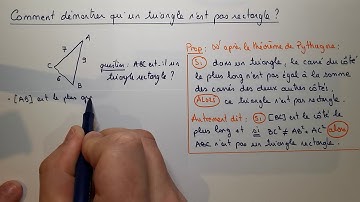 Comment démontrer qu'un triangle n'est pas rectangle ?
A
7
9
C
6
B
question : ABC est-il un
triangle rectangle ?
• [AB] est le plus gra
Prop : D'après le théorème de Pythagore :
Si dans un triangle, le carré du côté
le plus long n'est pas égal à la somme
des carrés des deux autres côtés,
Alors ce triangle n'est pas rectangle.
Autrement dit : Si [BC] est le côté le
plus long et si BC² ≠ AB² + AC² alors
ABC n'est pas un triangle rectangle.